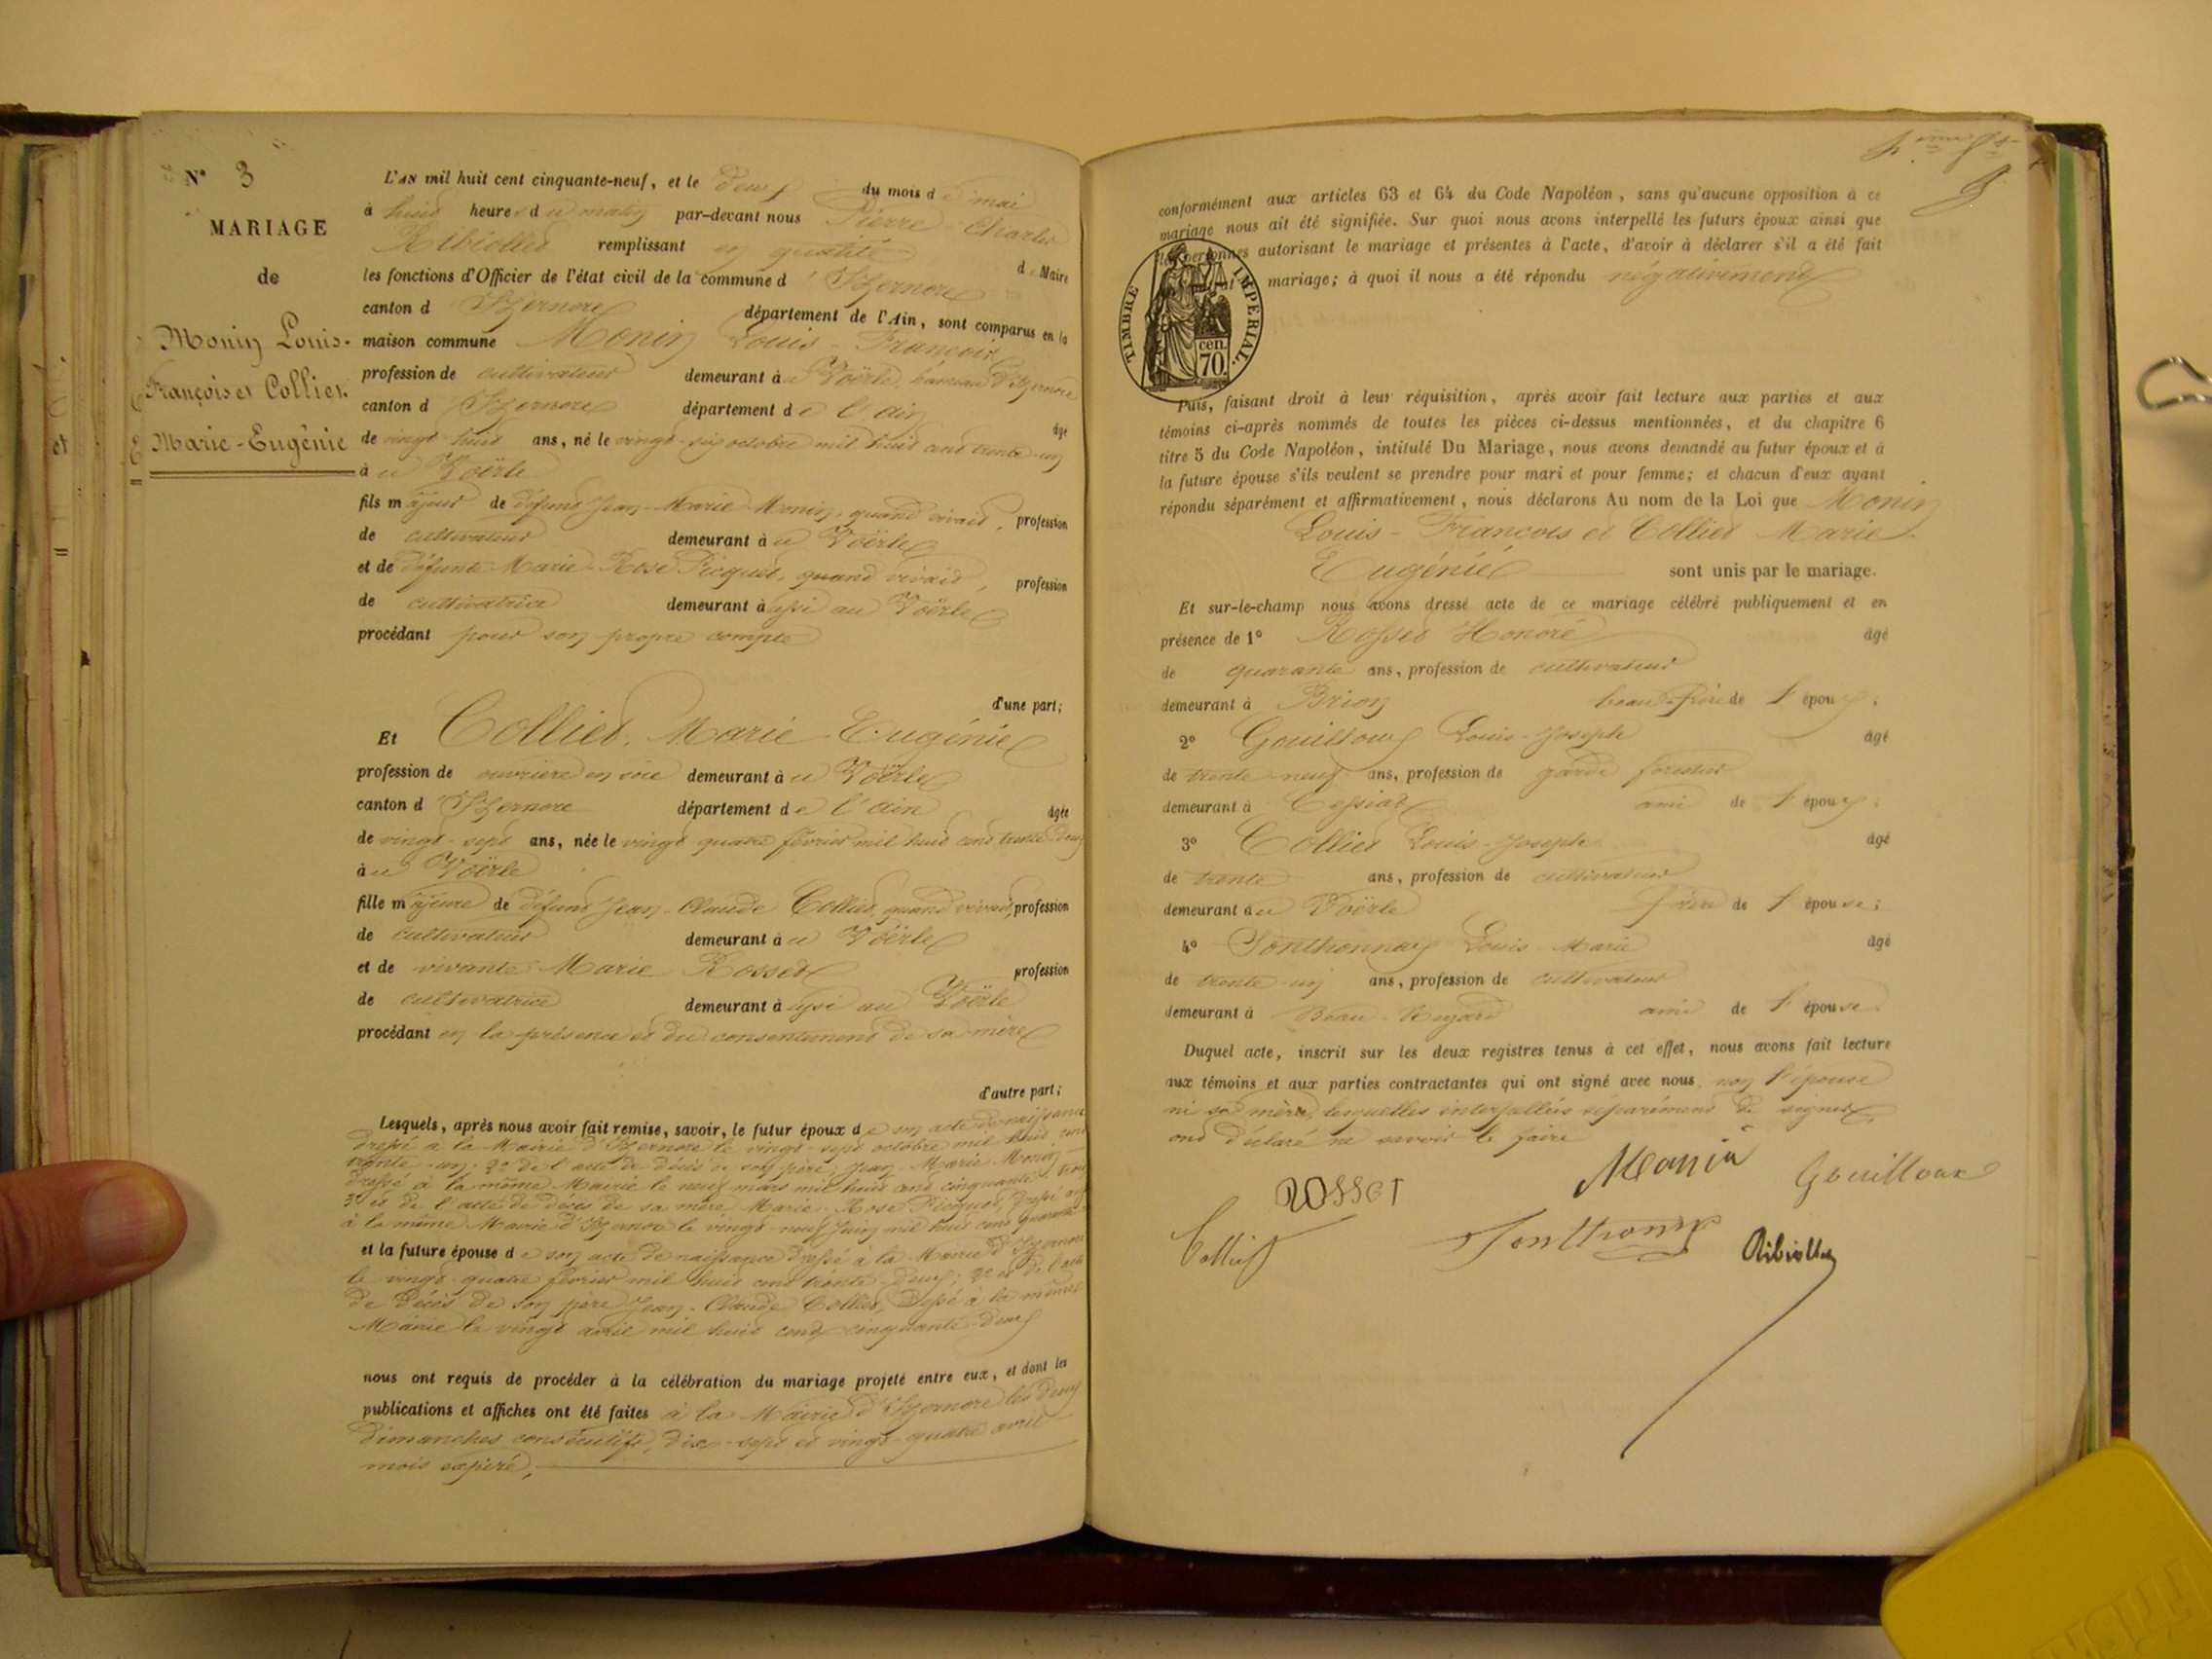 N° 3
MARIAGE
de
Monin Louis-
François et Colliet
Marie-Eugénie
L'AN mil huit cent cinquante-neuf, et le deux du mois de mai
à huit heures du matin par-devant nous Pierre-Charles
Ribiollet remplissant en qualité de Maire
les fonctions d'Officier de l'état civil de la commune d'Izernore
canton d'Izernore département de l'Ain, sont comparus en la
maison commune Monin Louis-François
profession de cultivateur demeurant au Voërle, hameau d'Izernore
canton d'Izernore département de l'ain âgé
de vingt-huit ans, né le vingt-six octobre mil huit cent trente-un
à u Voërle
fils majeur de défunt Jean-Marie Monin, quand vivait, profession
de cultivateur demeurant à u Voërle
et de défunte Marie-Rose Picquet, quand vivait, profession
de cultivatrice demeurant aussi au Voërle
procédant pour son propre compte
d'une part;
Et Colliet, Marie-Eugénie
profession de ouvrière en soie demeurant à u Voërle
canton d'Izernore département de l'ain âgée
de vingt-sept ans, née le vingt-quatre février mil huit cent trente-deux
à u Voërle
fille majeure de défunt Jean-Claude Colliet, quand vivait, profession
de cultivateur demeurant à u Voërle
et de vivante Marie Rosset profession
de cultivatrice demeurant aussi au Voërle
procédant en la présence et du consentement de sa mère
d'autre part;
Lesquels, après nous avoir fait remise, savoir, le futur époux de son acte de naissance
dressé à la Mairie d'Izernore le vingt-sept octobre mil huit cent
trente-un; 2° de l'acte de décès de son père, Jean-Marie Monin
dressé à la même Mairie le neuf mars mil huit cent cinquante
3° et de l'acte de décès de sa mère Marie-Rose Picquet, dressé
à la même Mairie d'Izernore le vingt-neuf juin mil huit cent quarante
et la future épouse de son acte de naissance dressé à la Mairie d'Izernore
le vingt-quatre février mil huit cent trente-deux; 2° et de l'acte
de décès de son père Jean-Claude Colliet, dressé à la même
Mairie le vingt avril mil huit cent cinquante-deux
nous ont requis de procéder à la célébration du mariage projeté entre eux, et dont les
publications et affiches ont été faites à la Mairie d'Izernore les deux
dimanches consécutifs, dix-sept et vingt-quatre avril
mois expiré,
conformément aux articles 63 et 64 du Code Napoléon, sans qu'aucune opposition à ce
mariage nous ait été signifiée. Sur quoi nous avons interpellé les futurs époux ainsi que
les personnes autorisant le mariage et présentes à l'acte, d'avoir à déclarer s'il a été fait
mariage; à quoi il nous a été répondu négativement
TIMBRE IMPÉRIAL.
70. cen.
Puis, faisant droit à leur réquisition, après avoir fait lecture aux parties et aux
témoins ci-après nommés de toutes les pièces ci-dessus mentionnées, et du chapitre 6
titre 5 du Code Napoléon, intitulé Du Mariage, nous avons demandé au futur époux et à
la future épouse s'ils veulent se prendre pour mari et pour femme; et chacun d'eux ayant
répondu séparément et affirmativement, nous déclarons Au nom de la Loi que Monin
Louis-François et Colliet Marie-
Eugénie sont unis par le mariage.
Et sur-le-champ nous avons dressé acte de ce mariage célébré publiquement et en
présence de 1° Rosset Honoré âgé
de quarante ans, profession de cultivateur
demeurant à Brion beau-frère de l'époux;
2° Gouilloux Louis-Joseph âgé
de trente-neuf ans, profession de garde forestier
demeurant à Cessiat ami de l'époux;
3° Colliet Louis-Joseph âgé
de trente ans, profession de cultivateur
demeurant à u Voërle frère de l'épouse;
4° Sonthonnax Louis-Marie âgé
de trente-un ans, profession de cultivateur
demeurant à Beau-Regard ami de l'épouse.
Duquel acte, inscrit sur les deux registres tenus à cet effet, nous avons fait lecture
aux témoins et aux parties contractantes qui ont signé avec nous, non l'épouse
ni sa mère, lesquelles interpellées séparément de signer,
ont déclaré ne savoir le faire
Monin
Gouilloux
ROSSET
Colliet
Sonthonnax
Ribiollet